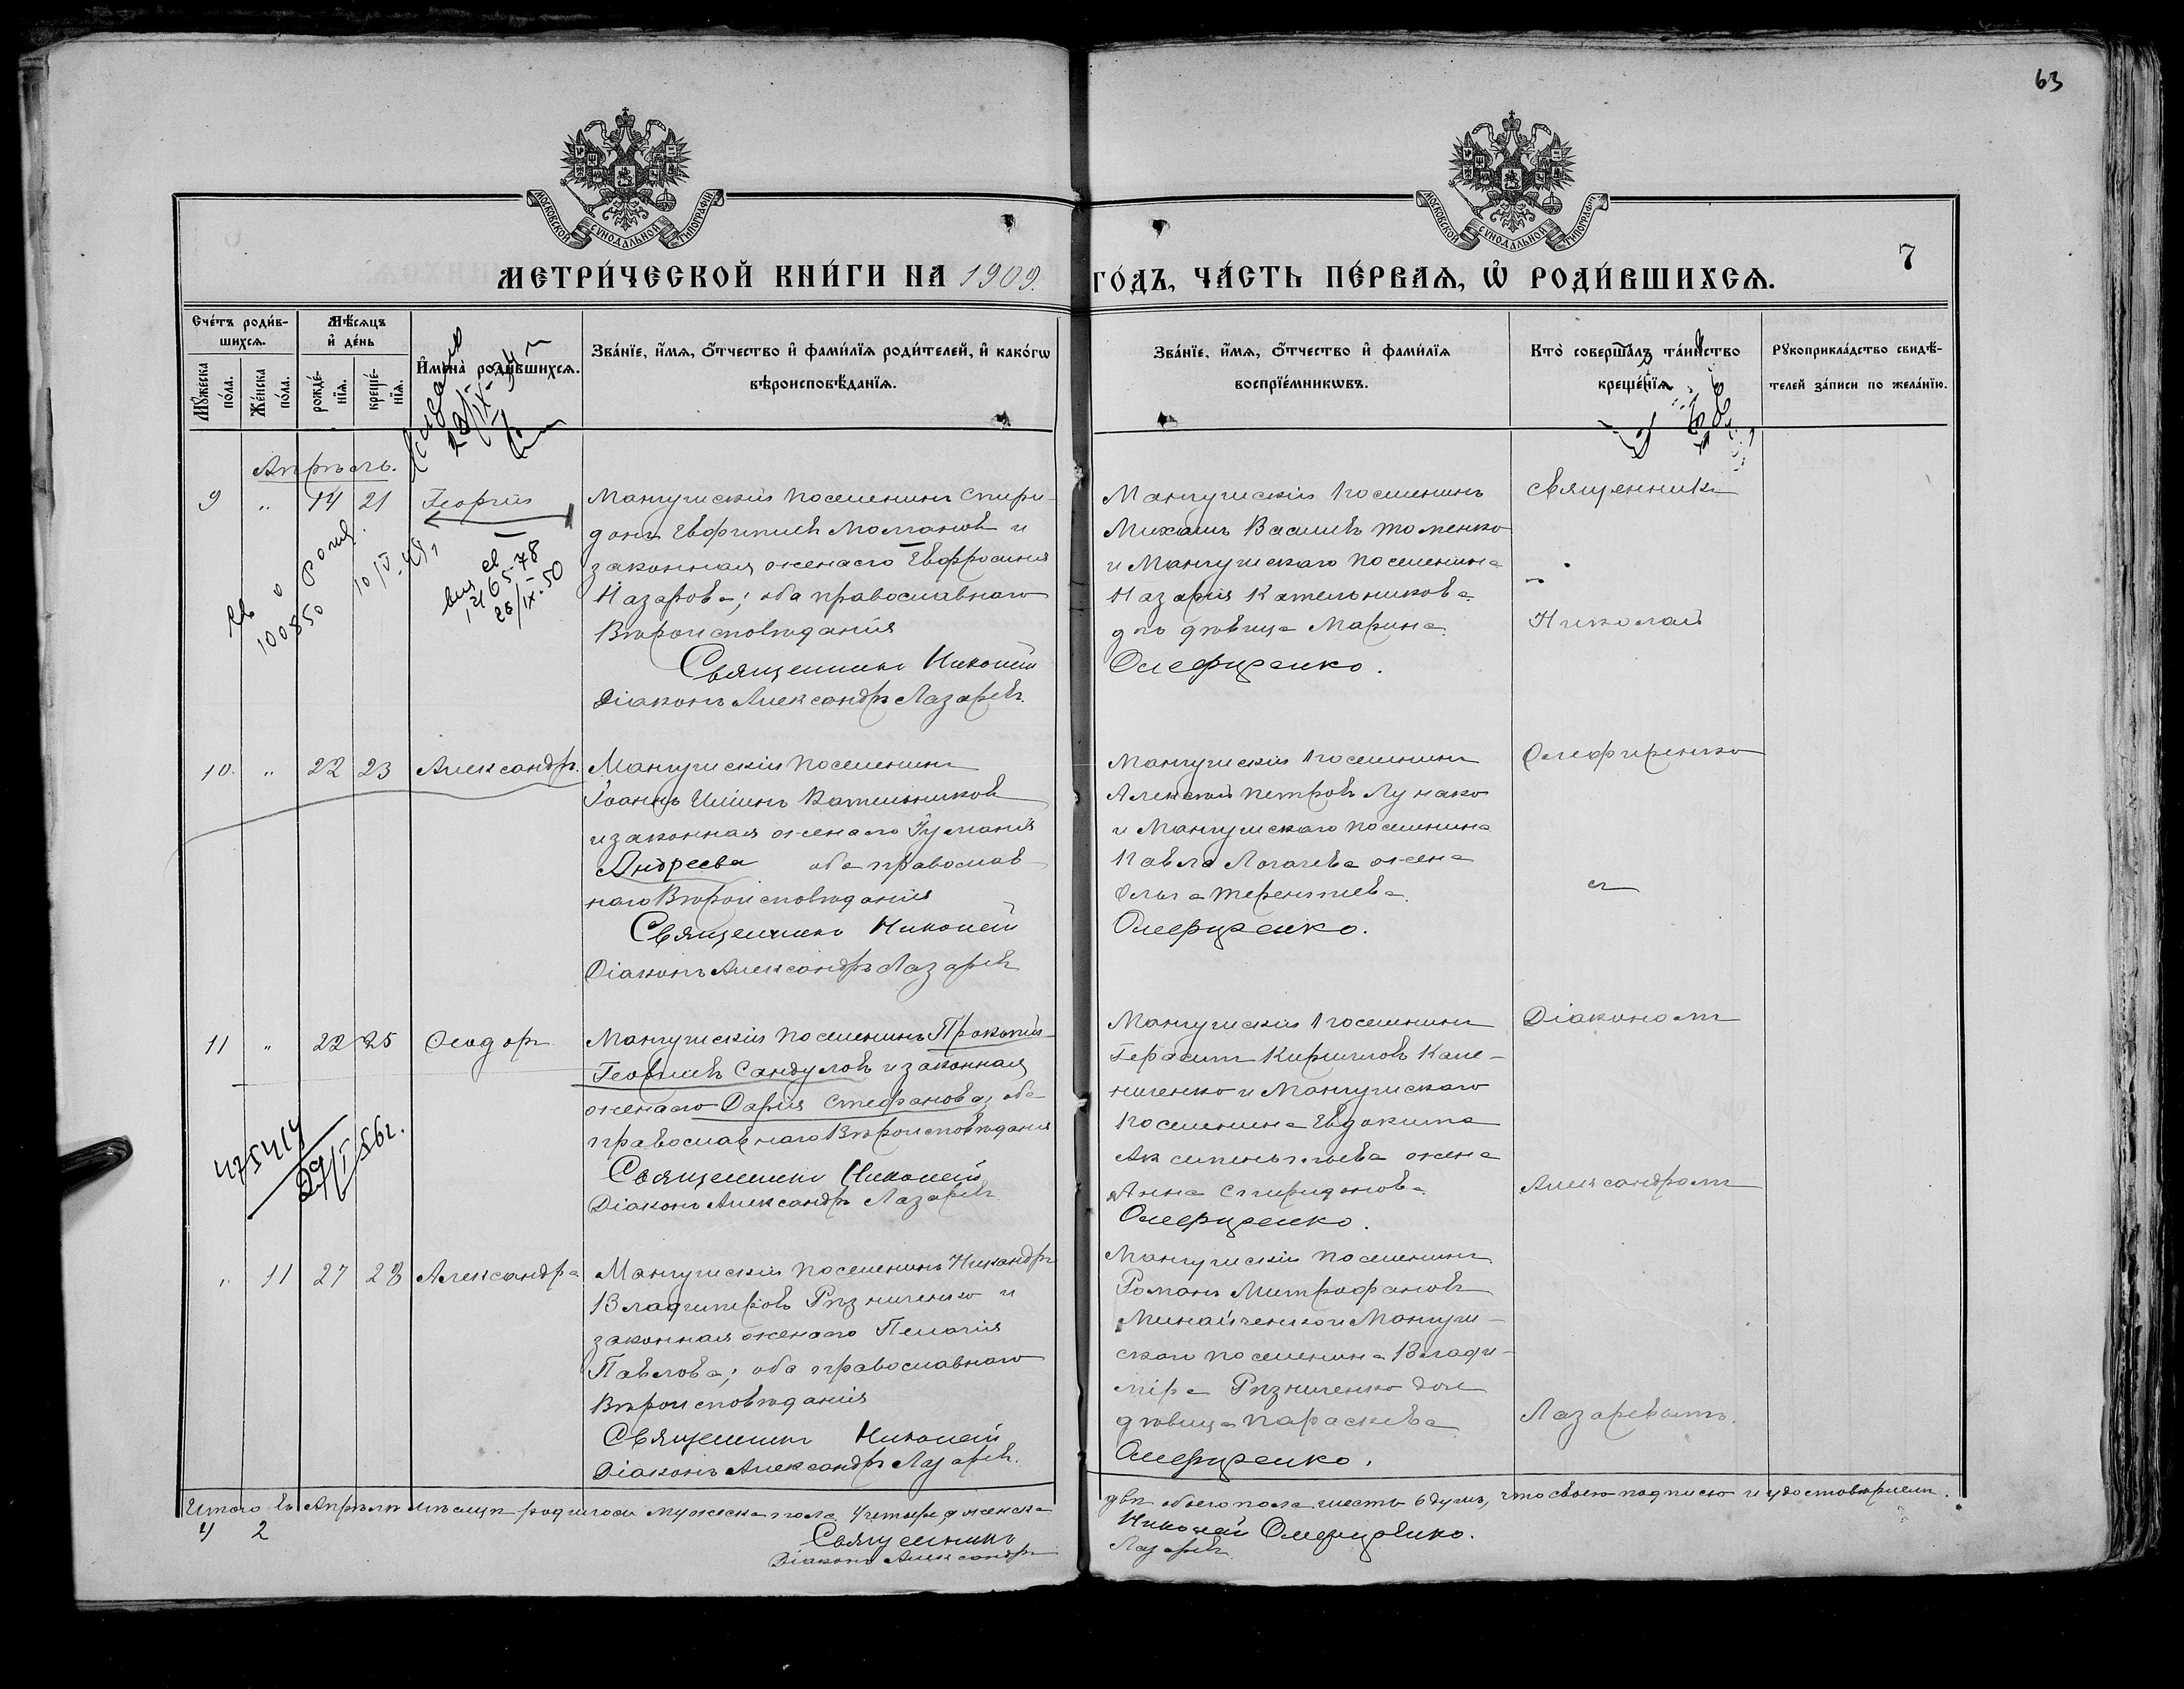 63
МОСКОВСКОЙ СѴНОДАЛЬНОЙ ТИПОГРАФІИ
МОСКОВСКОЙ СѴНОДАЛЬНОЙ ТИПОГРАФІИ
7
МЕТРИ́ЧЕСКОЙ КНИ́ГИ НА 1909.
ГО́ДЪ, ЧА́СТЬ ПЕ́РВАѦ, Ѽ РОДИ́ВШИХСѦ.
Сче́тъ роди́в-
шихсѧ.
Мꙋ́жеска по́ла.
Же́нска по́ла.
Мѣ́сѧцъ и҆ де́нь
рожде́-нїѧ.
креще́-нїѧ.
И҆мена̀ роди́вшихсѧ.
Зва́нїе, и҆́мѧ, ѻ҆́тчество и҆ фами́лїѧ роди́телей, и҆ како́гѡ
вѣроисповѣ́данїѧ.
Зва́нїе, и҆́мѧ, ѻ҆́тчество и҆ фами́лїѧ
воспрїе́мникѡвъ.
Кто̀ соверша́лъ та́инство
креще́нїѧ.
Рꙋкоприкла́дство свидѣ́-
телей за́писи по жела́нїю.
Апрѣль.
9 " 14 21 Георгій
Мангушскій поселенинъ Спири-
донъ Евфиміевъ и
законная жена его Евфросинія
Назарова; оба православнаго
Вѣроисповѣданія
Священникъ Николай
Діаконъ Александръ Лазаревъ.
Мангушскій поселенинъ
Михаилъ Васильевъ Томенко
и Мангушскаго поселенина
Назарія Котельникова
дочь дѣвица Марина.
Олефиренко.
Священникъ
Николай
100850
10/V-
28/IX-50
10. " 22 23 Александръ.
Мангушскій поселенинъ
Іоаннъ Ильинъ Котельниковъ
и законная жена его Іуліанія
Андреева оба православ-
наго Вѣроисповѣданія
Священникъ Николай
Діаконъ Александръ Лазаревъ
Мангушскій поселенинъ
Алексѣй Петровъ Лунако
и Мангушскаго поселенина
Павла Логачева жена
Ольга Терентіева.
Олефиренко.
Олефиренко
съ
11 " 22 25 Ѳеодоръ
Мангушскій поселенинъ Прокопій
Георгіевъ Сандуловъ и законная
жена его Дарія Стефанова; оба
православнаго Вѣроисповѣданія
Священникъ Николай
Діаконъ Александръ Лазаревъ
Мангушскій поселенинъ
Герасимъ Кирилловъ Кале-
ниченко и Мангушскаго
поселенина Евдокима
жена
Анна Спиридонова.
Олефиренко.
Діакономъ
Александромъ
475414
29/I 56г.
" 11 27 28 Александра
Мангушскій поселенинъ Никандръ
Владиміровъ Рѣзниченко и
законная жена его Пелагія
Павлова; оба православнаго
Вѣроисповѣданія
Священникъ Николай
Діаконъ Александръ Лазаревъ.
Мангушскій поселенинъ
Романъ Митрофановъ
Минайченко и Мангуш-
скаго поселенина Влади-
міра Рѣзниченко дочь
дѣвица Параскева
Олефиренко.
Лазаревымъ.
Итого въ Апрѣлѣ мѣсяцѣ родилось мужеска пола 4 четыре, женска
двѣ обоего пола шесть 6 душъ, что своею подписью и удостовѣряемъ.
4 2
Священникъ
Николай Олефиренко.
Діаконъ Александръ
Лазаревъ.